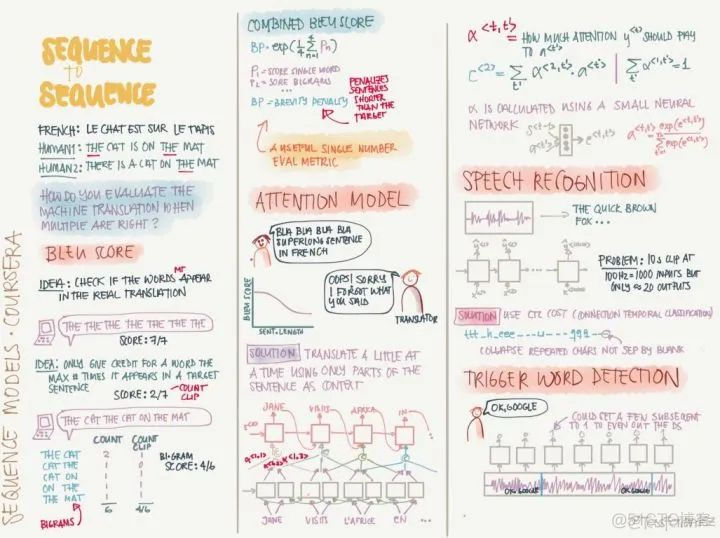 SEQUENCE
to
SEQUENCE
FRENCH: LE CHAT EST SUR LE TAPIS
HUMAN1: THE CAT IS ON THE MAT
HUMAN2: THERE IS A CAT ON THE MAT
HOW DO YOU EVALUATE THE
MACHINE TRANSLATION WHEN
MULTIPLE ARE RIGHT?
BLEU SCORE
IDEA: CHECK IF THE WORDS MT APPEAR
IN THE REAL TRANSLATION
THE THE THE THE THE THE THE
SCORE: 7/7
IDEA: ONLY GIVE CREDIT FOR A WORD THE
MAX # TIMES IT APPEARS IN A TARGET
SENTENCE
SCORE: 2/7
COUNT
CLIP
THE CAT THE CAT ON THE MAT
COUNT
COUNT
CLIP
THE CAT 2 1
CAT THE 1 0
CAT ON 1 1
ON THE 1 1
THE MAT 1 1
6 4/6
BIGRAM
SCORE: 4/6
BIGRAMS
SEQUENCE MODELS · COURSERA
COMBINED BLEU SCORE
BP · exp(1/4 Σ Pn)
n=1
4
P1 = SCORE SINGLE WORD
P2 = SORE BIGRAMS
...
BP = BREVITY PENALTY
PENALIZES
SENTENCES
SHORTER
THAN THE
TARGET
A USEFUL SINGLE NUMBER
EVAL METRIC
ATTENTION MODEL
BLA BLA BLA BLA
SUPERLONG SENTENCE
IN FRENCH
OOPS! SORRY
I FORGOT WHAT
YOU SAID
TRANSLATOR
BLEU SCORE
SENT. LENGTH
SOLUTION TRANSLATE A LITTLE AT
A TIME USING ONLY PARTS OF THE
SENTENCE AS CONTEXT
JANE VISITS AFRICA IN..
JANE VISITS L'AFRICE EN ...
α<t,t'> = HOW MUCH ATTENTION y<t> SHOULD PAY
TO a<t'>
c<2> = Σ α<2,t'> · a<t'> | Σ α<1,t'> = 1
t' t'
α IS CALCULATED USING A SMALL NEURAL
NETWORK
s<t-1>
a<t'>
e<t,t'>
α<t,t'> = exp(e<t,t'>) / Σ exp(e<t,t'>)
SPEECH RECOGNITION
THE QUICK BROWN
FOX ...
PROBLEM: 10s CLIP AT
100HZ = 1000 INPUTS BUT
ONLY ≈ 20 OUTPUTS
SOLUTION USE CTC COST (CONNECTION TEMPORAL CLASSIFICATION)
ttt_h_eee---u---qqq--
COLLAPSE REPEATED CHARS NOT SEP BY BLANK
TRIGGER WORD DETECTION
OK, GOOGLE
COULD SET A FEW SUBSEQENT
TO 1 TO EVEN OUT THE DS
OK GOOGLE OK GOOGLE